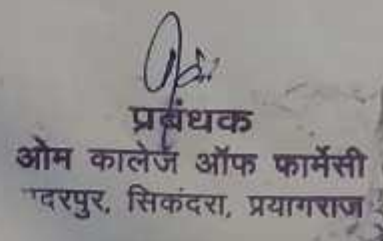 प्रबंधक
ओम कालेज ऑफ फार्मेसी
सिकंदरा, प्रयागराज